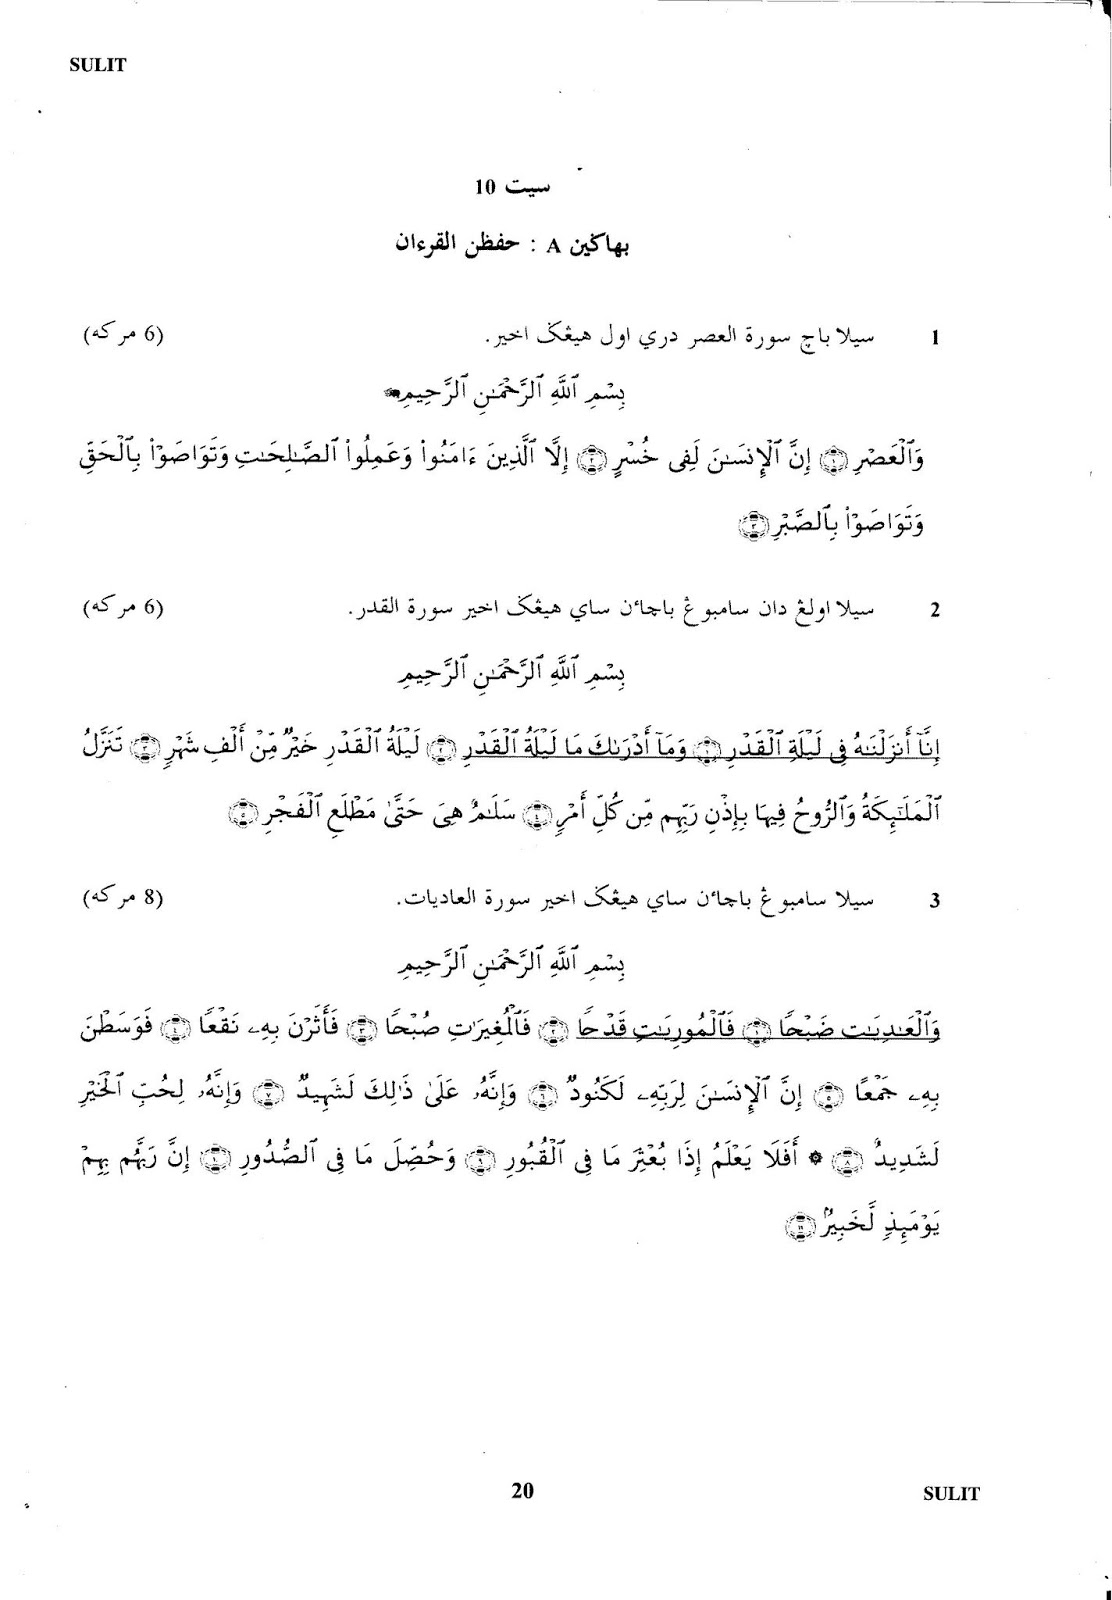 SULIT
سيت 10
بهاݢين A : حفظن القرءان
1 سيلا باچ سورة العصر دري اول هيڠݢ اخير. (6 مركه)
بِسْمِ ٱللَّهِ ٱلرَّحْمَـٰنِ ٱلرَّحِيمِ
وَٱلْعَصْرِ ۝١ إِنَّ ٱلْإِنسَـٰنَ لَفِى خُسْرٍ ۝٢ إِلَّا ٱلَّذِينَ ءَامَنُوا۟ وَعَمِلُوا۟ ٱلصَّـٰلِحَـٰتِ وَتَوَاصَوْا۟ بِٱلْحَقِّ
وَتَوَاصَوْا۟ بِٱلصَّبْرِ ۝٣
2 سيلا اولڠ دان سامبوڠ باچاءن ساي هيڠݢ اخير سورة القدر. (6 مركه)
بِسْمِ ٱللَّهِ ٱلرَّحْمَـٰنِ ٱلرَّحِيمِ
إِنَّآ أَنزَلْنَـٰهُ فِى لَيْلَةِ ٱلْقَدْرِ ۝١ وَمَآ أَدْرَىٰكَ مَا لَيْلَةُ ٱلْقَدْرِ ۝٢ لَيْلَةُ ٱلْقَدْرِ خَيْرٌ مِّنْ أَلْفِ شَهْرٍ ۝٣ تَنَزَّلُ
ٱلْمَلَـٰٓئِكَةُ وَٱلرُّوحُ فِيهَا بِإِذْنِ رَبِّهِم مِّن كُلِّ أَمْرٍ ۝٤ سَلَـٰمٌ هِىَ حَتَّىٰ مَطْلَعِ ٱلْفَجْرِ ۝٥
3 سيلا سامبوڠ باچاءن ساي هيڠݢ اخير سورة العاديات. (8 مركه)
بِسْمِ ٱللَّهِ ٱلرَّحْمَـٰنِ ٱلرَّحِيمِ
وَٱلْعَـٰدِيَـٰتِ ضَبْحًا ۝١ فَٱلْمُورِيَـٰتِ قَدْحًا ۝٢ فَٱلْمُغِيرَٰتِ صُبْحًا ۝٣ فَأَثَرْنَ بِهِۦ نَقْعًا ۝٤ فَوَسَطْنَ
بِهِۦ جَمْعًا ۝٥ إِنَّ ٱلْإِنسَـٰنَ لِرَبِّهِۦ لَكَنُودٌ ۝٦ وَإِنَّهُۥ عَلَىٰ ذَٰلِكَ لَشَهِيدٌ ۝٧ وَإِنَّهُۥ لِحُبِّ ٱلْخَيْرِ
لَشَدِيدٌ ۝٨ ۞ أَفَلَا يَعْلَمُ إِذَا بُعْثِرَ مَا فِى ٱلْقُبُورِ ۝٩ وَحُصِّلَ مَا فِى ٱلصُّدُورِ ۝١٠ إِنَّ رَبَّهُم بِهِمْ
يَوْمَئِذٍ لَّخَبِيرٌۢ ۝١١
20
SULIT